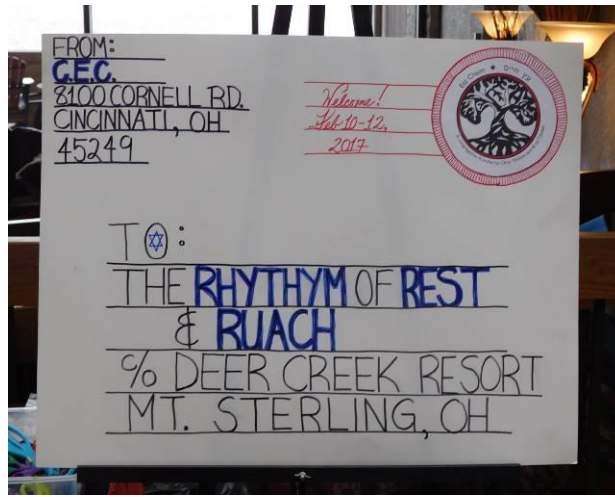 FROM:
C.E.C.
8100 CORNELL RD.
CINCINNATI, OH
45249
Welcome!
Feb 10-12,
2017
Etz Chaim
עץ חיים
TO:
THE RHYTHYM OF REST
& RUACH
c/o DEER CREEK RESORT
MT. STERLING, OH